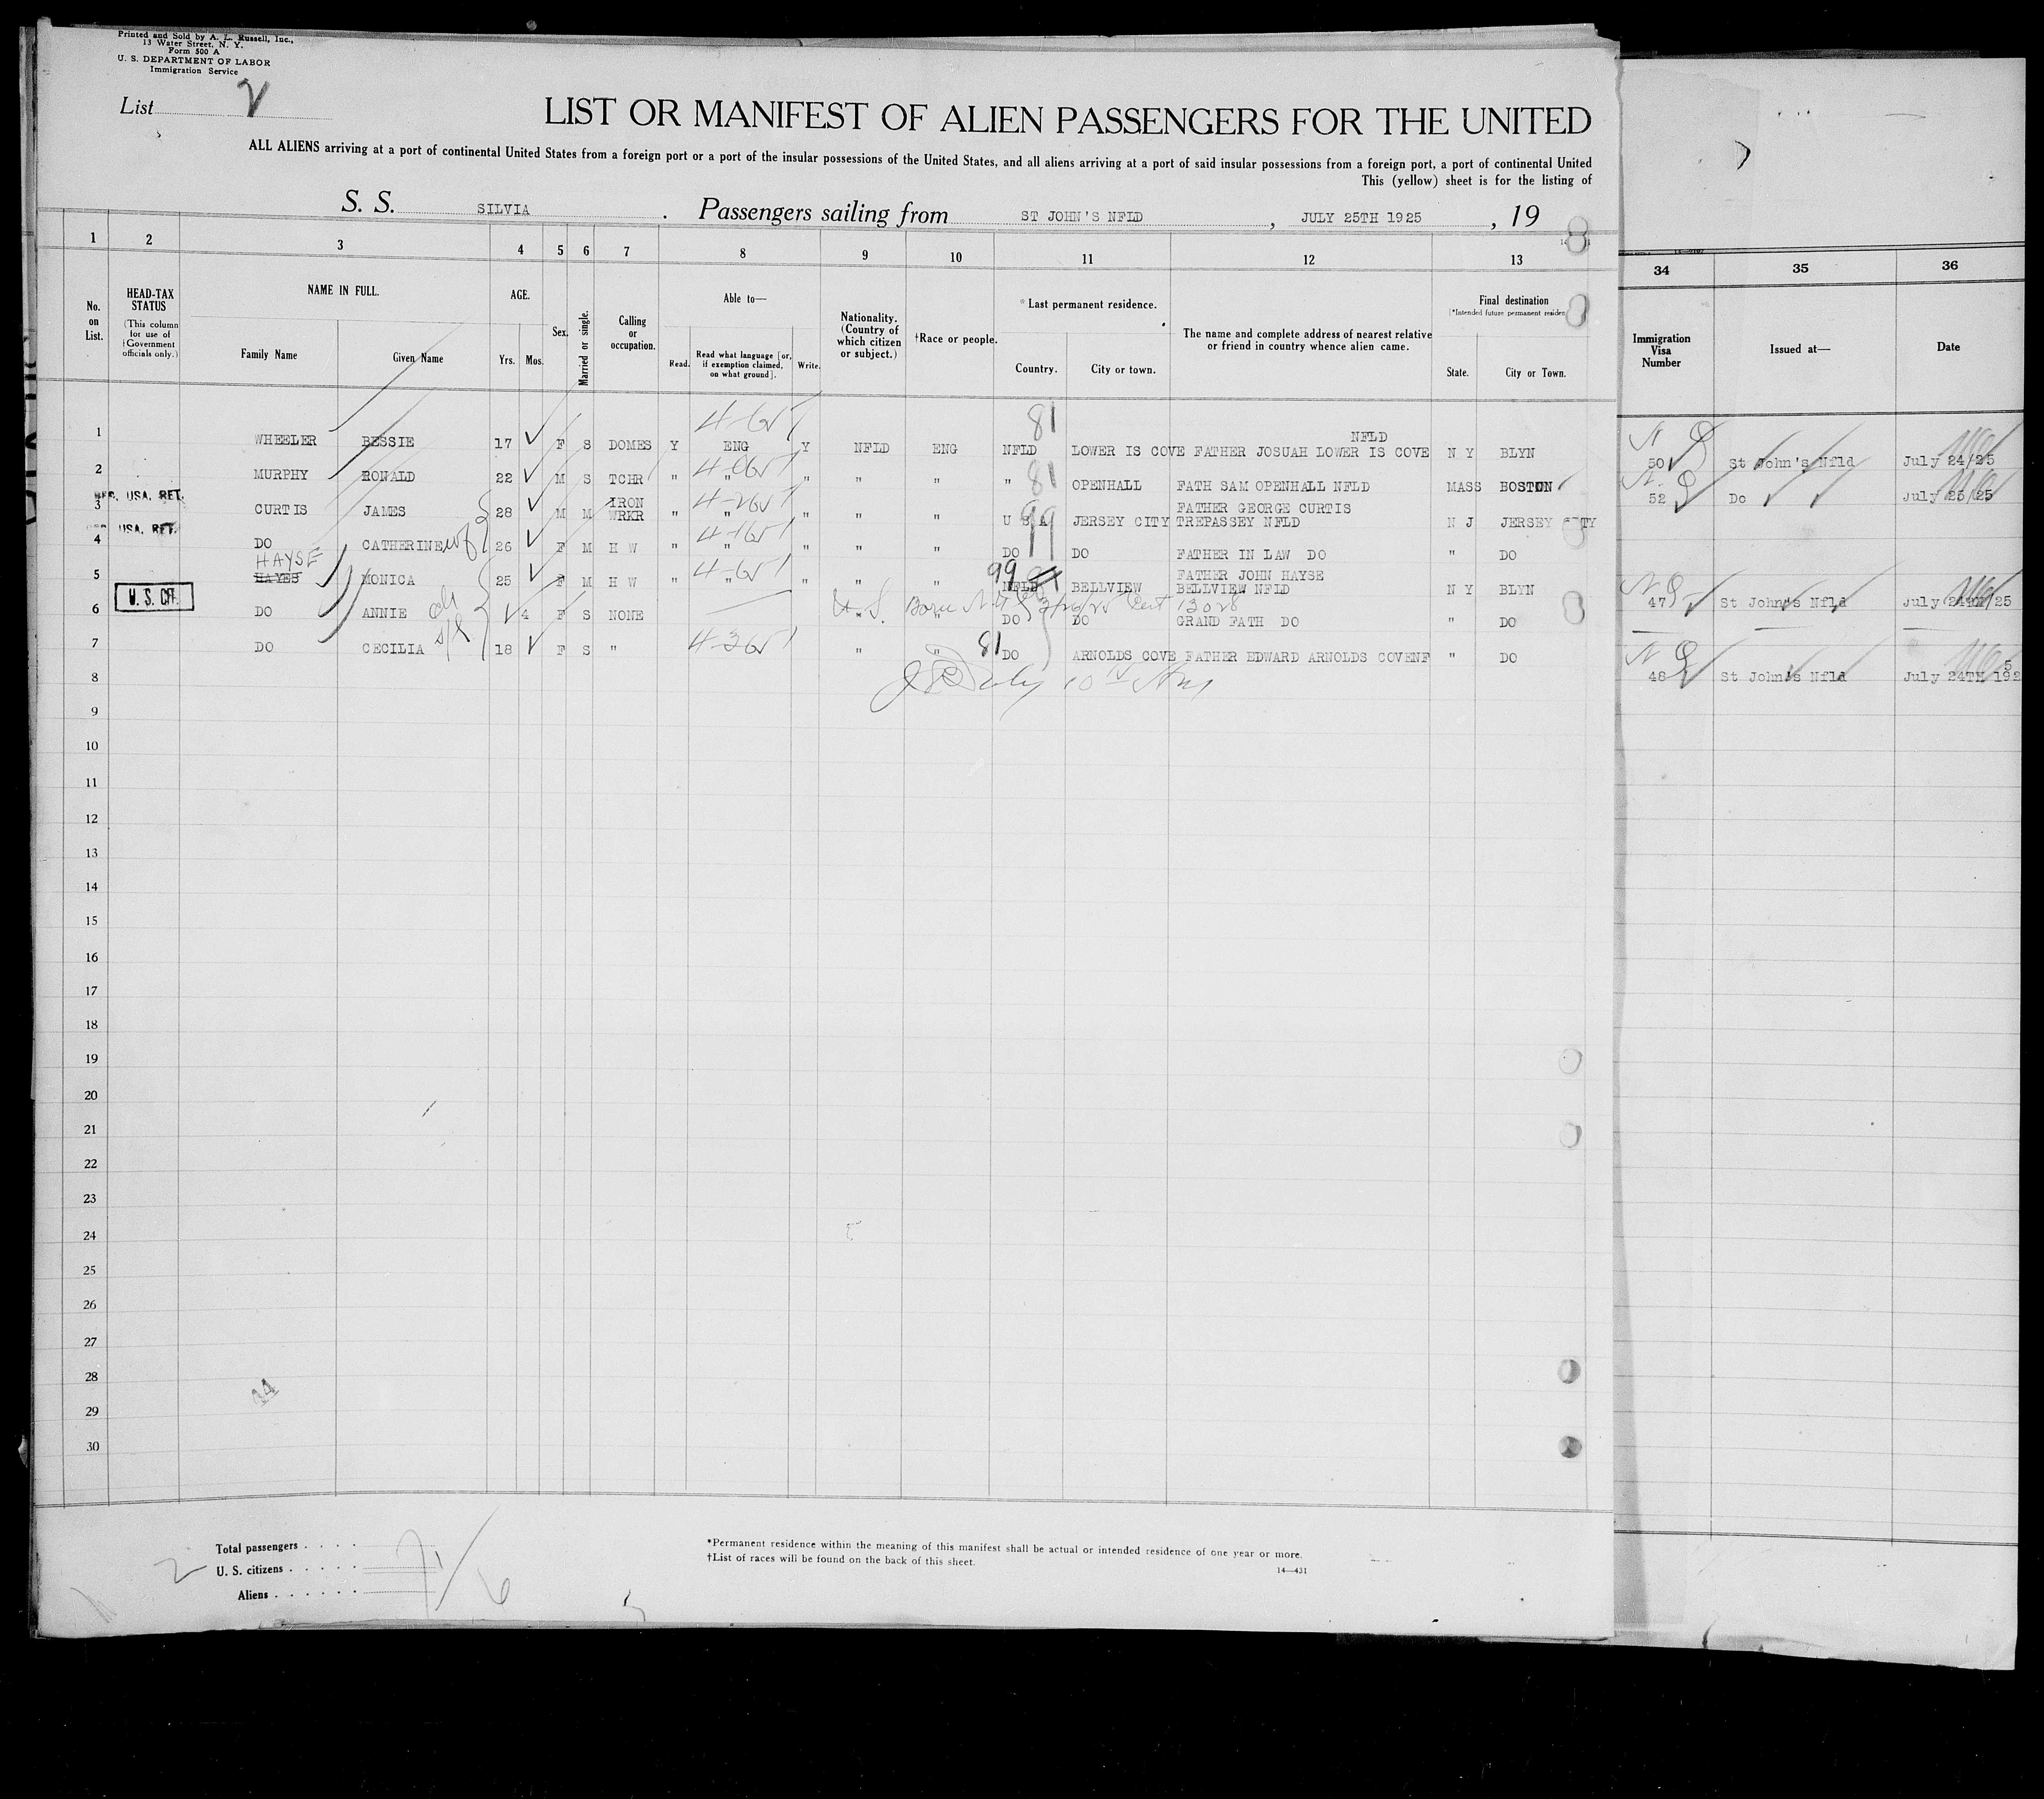 Printed and Sold by A. L. Russell, Inc.,
13 Water Street, N. Y.
Form 500 A
U. S. DEPARTMENT OF LABOR
Immigration Service
List 2
LIST OR MANIFEST OF ALIEN PASSENGERS FOR THE UNITED
ALL ALIENS arriving at a port of continental United States from a foreign port or a port of the insular possessions of the United States, and all aliens arriving at a port of said insular possessions from a foreign port, a port of continental United
This (yellow) sheet is for the listing of
S. S. SILVIA . Passengers sailing from ST JOHN'S NFLD , JULY 25TH 1925 , 19
1 2 3 4 5 6 7 8 9 10 11 12 13 34 35 36
No. on List.
HEAD-TAX STATUS
(This column for use of Government officials only.)
NAME IN FULL.
Family Name
Given Name
AGE.
Yrs. Mos.
Sex.
Married or single.
Calling or occupation.
Able to—
Read.
Read what language [or, if exemption claimed, on what ground].
Write.
Nationality. (Country of which citizen or subject.)
†Race or people.
*Last permanent residence.
Country.
City or town.
The name and complete address of nearest relative or friend in country whence alien came.
Final destination
(*Intended future permanent residen
State.
City or Town.
Immigration Visa Number
Issued at—
Date
81
NFLD
1 WHEELER BESSIE 17 F S DOMES Y ENG Y NFLD ENG NFLD LOWER IS COVE FATHER JOSUAH LOWER IS COVE N Y BLYN 50 St John's Nfld July 24/25
2 MURPHY RONALD 22 M S TCHR " " " " " " 81 OPENHALL FATH SAM OPENHALL NFLD MASS BOSTON 52 Do July 25/25
USA. RET.
IRON FATHER GEORGE CURTIS
3 CURTIS JAMES 28 M M WRKR " " " " " U S A 99 JERSEY CITY TREPASSEY NFLD N J JERSEY CITY
USA. RET.
4 DO CATHERINE wf 26 F M H W " " " " " DO DO FATHER IN LAW DO " DO
HAYSE 99 FATHER JOHN HAYSE
5 HAYES MONICA 25 F M H W " " " " " NFLD BELLVIEW BELLVIEW NFLD N Y BLYN 47 St John's Nfld July 24TH/25
U. S. CIT.
Born N.Y. 3/26/25 Cert 13028
6 DO ANNIE 4 F S NONE " " DO DO GRAND FATH DO " DO
7 DO CECILIA 18 F S " " " 81 DO ARNOLDS COVE FATHER EDWARD ARNOLDS COVENF " DO 48 St John's Nfld July 24TH 1925
8
9
10
11
12
13
14
15
16
17
18
19
20
21
22
23
24
25
26
27
28
29
30
Total passengers . . . .
U. S. citizens . . . . .
Aliens . . . . . .
*Permanent residence within the meaning of this manifest shall be actual or intended residence of one year or more.
†List of races will be found on the back of this sheet.
14—431